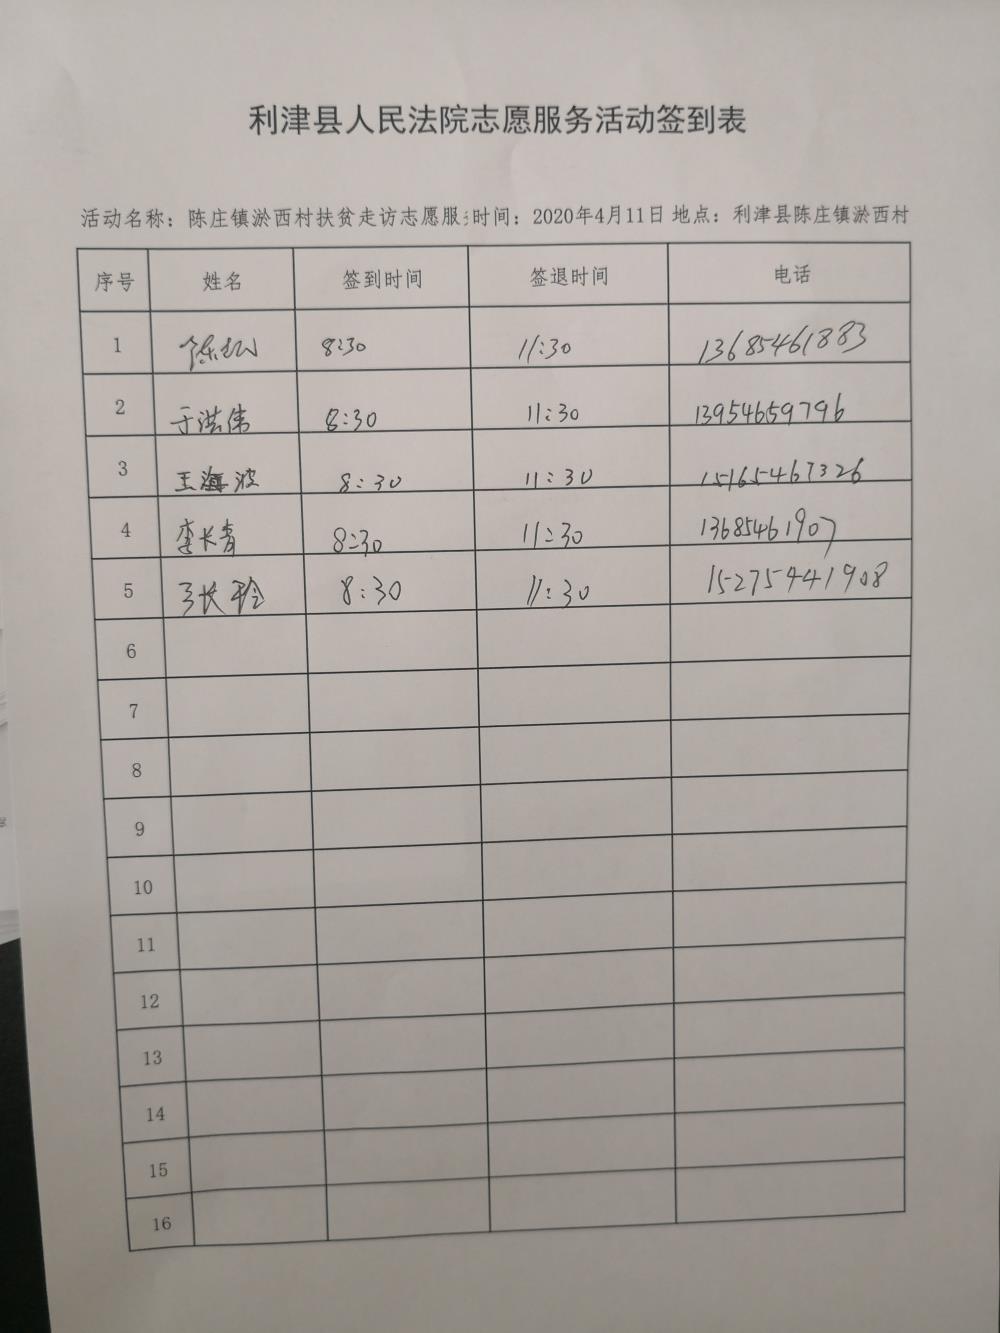 利津县人民法院志愿服务活动签到表
活动名称：陈庄镇淤西村扶贫走访志愿服 时间：2020年4月11日 地点：利津县陈庄镇淤西村
序号 姓名 签到时间 签退时间 电话
1 陈 8:30 11:30 13685461883
2 于洪伟 8:30 11:30 13954659796
3 王海波 8:30 11:30 15165467326
4 李长青 8:30 11:30 13685461907
5 8:30 11:30 15275441908
6
7
8
9
10
11
12
13
14
15
16